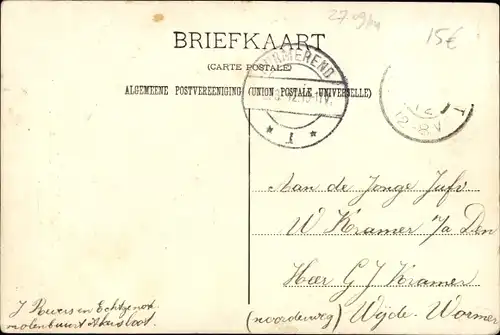 15€
BRIEFKAART
(CARTE POSTALE)
ALGEMEENE POSTVEREENIGING (UNION POSTALE UNIVERSELLE)
PURMEREND
* 1 *
12-8V
Aan de Jonge Jufv
W Kramer p/a Den
Heer G J Kramer
(noorderweg) Wijde-Wormer
J Rovers en Echtgenoot
molenbuurt Akersloot.